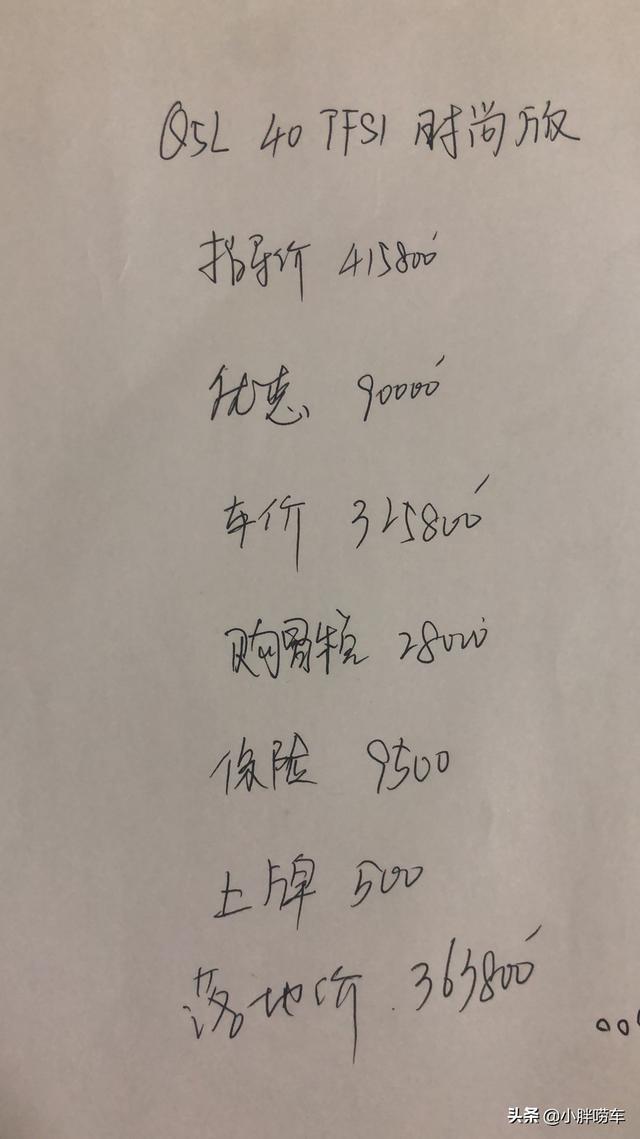 Q5L 40 TFSI 时尚版
指导价 415800
优惠 90000
车价 325800
购置税 28000
保险 9500
上牌 500
落地价 363800
头条 @小胖唠车